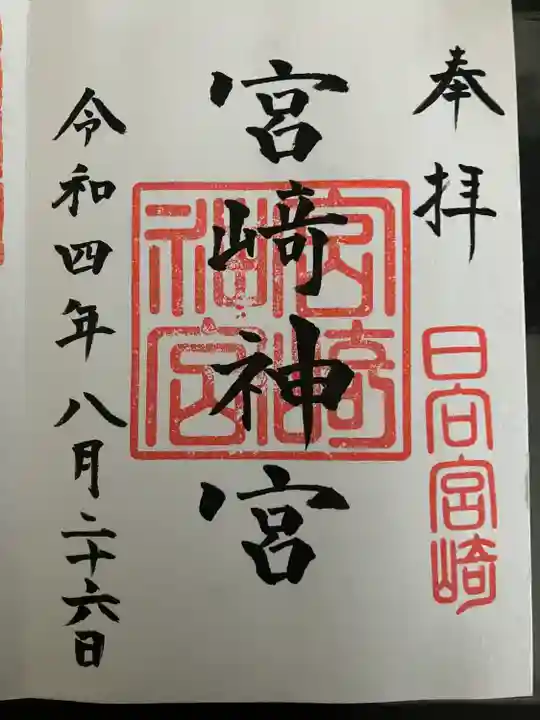 奉拝
日向宮崎
宮﨑神宮
宮崎神宮
令和四年八月二十六日